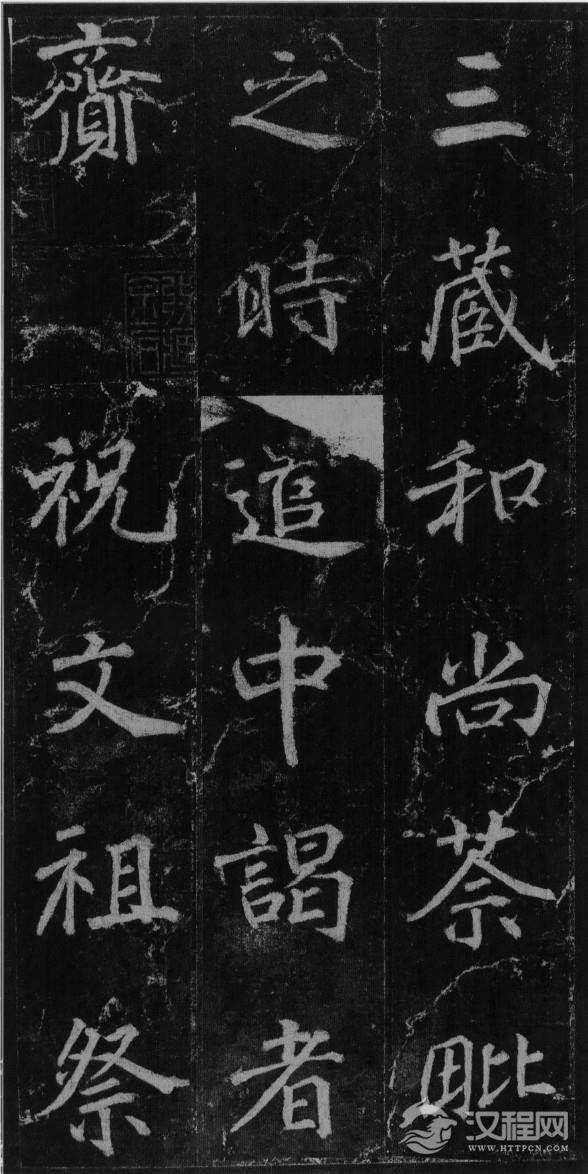 三藏和尚荼毗
之時追中謁者
齎祝文祖祭
汉程网
WWW.HTTPCN.COM